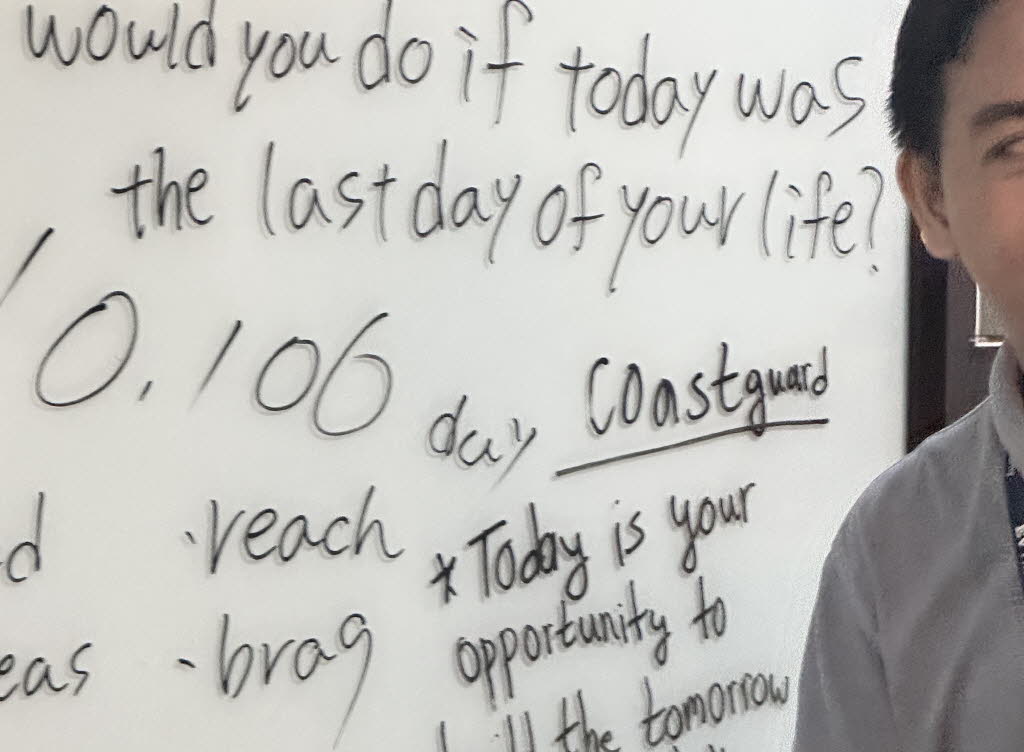 would you do if today was
the last day of your life?
0,106 day coastguard
d .reach
*Today is your
eas -brag
opportunity to
the tomorrow